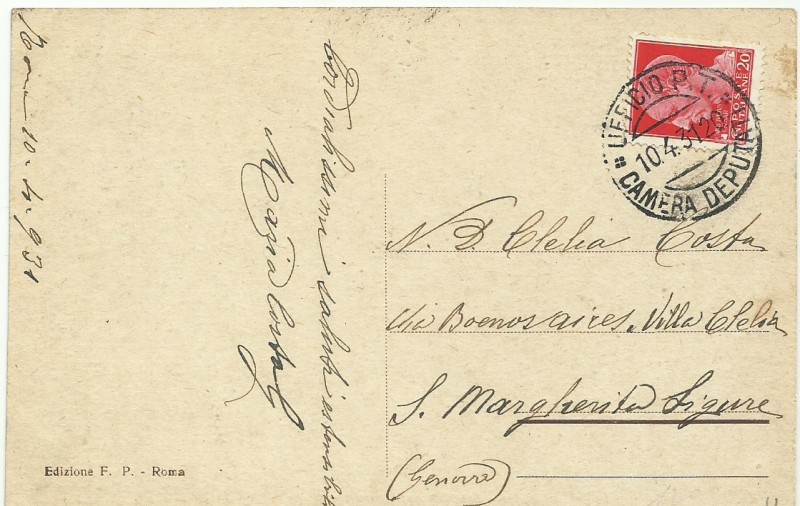 Roma 10.4.931
Cordialissimi saluti
Maria Costa
POSTE
20
UFFICIO P.T.
10.4.31.20
CAMERA DEPUTA
N. D. Clelia Costa
Via Boenos aires, Villa Clelia
S. Margherita Ligure
(Genova)
Edizione F. P. - Roma